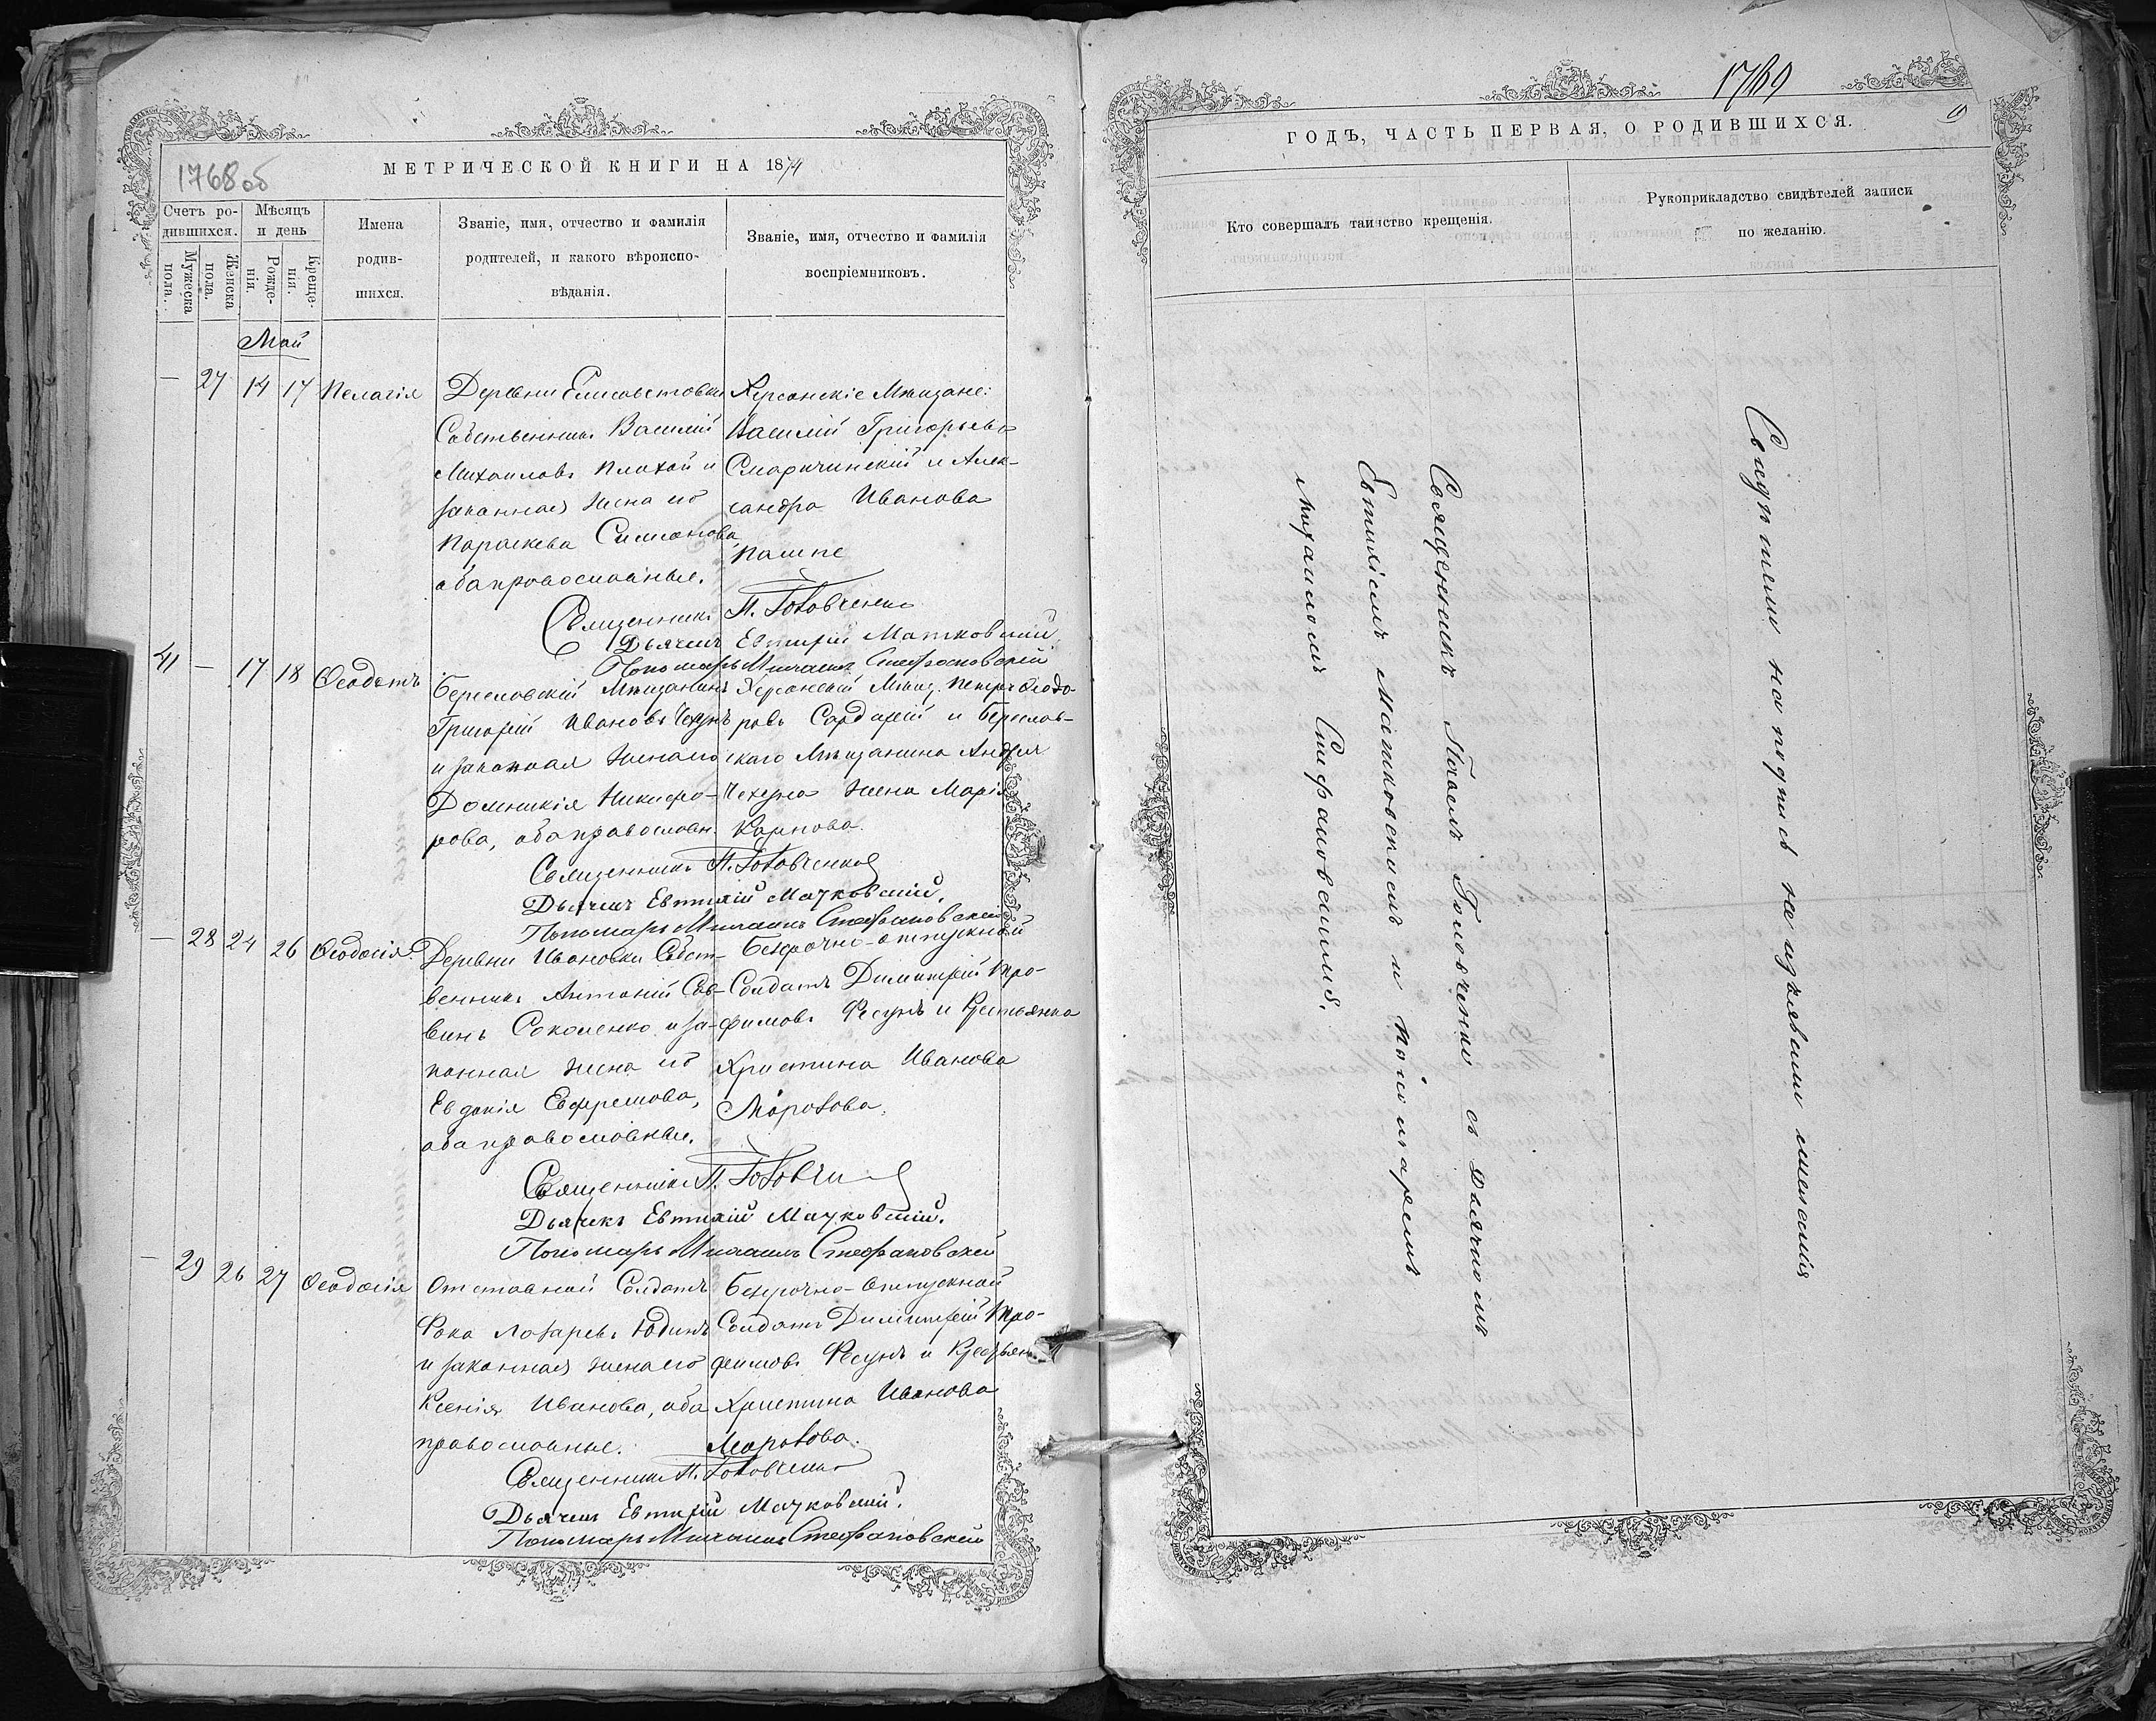 1768 об
МЕТРИЧЕСКОЙ КНИГИ НА 1874
Счетъ ро-
дившихся.
Мѣсяцъ
и день
Мужеска
пола.
Женска
пола.
Рожде-
нія.
Креще-
нія.
Имена
родив-
шихся.
Званіе, имя, отчество и фамилія
родителей, и какого вѣроиспо-
вѣданія.
Званіе, имя, отчество и фамилія
воспріемниковъ.
Май
— 27 14 17 Пелагія
Деревни Елисаветовки
Собственникъ Василій
Михаиловъ Плахой и
законная жена его
Параскева Симонова,
оба православные.
Херсонскіе Мѣщане:
Василій Григорьевъ
и Алек-
сандра Иванова
Священникъ П. Головченко
Дьячекъ Евтихій Матковскій
Пономарь Михаилъ Стефановскій
41 — 17 18 Ѳеодотъ
Бериславскій Мѣщанинъ
Григорій Ивановъ Чехунъ
и законная жена его
Домникія Никифо-
рова, оба православн.
Херсонскій Мѣщ. Петръ Ѳеодо-
ровъ и Берислав-
скаго Мѣщанина Андрея
Чехуна жена Марія
Карпова.
Священникъ П. Головченко
Дьячекъ Евтихій Матковскій.
Пономарь Михаилъ Стефановскій
— 28 24 26 Ѳеодосія.
Деревни Ивановки Собст-
венникъ Антоній Сав-
винъ Соколенко и за-
конная жена его
Евдокія Ефремова,
оба православные.
Безсрочно-отпускной
Солдатъ Димитрій Тро-
фимовъ Фесунъ и Крестьянка
Христина Иванова
Морозова.
Священникъ П. Головченко
Дьячекъ Евтихій Матковскій.
Пономарь Михаилъ Стефановскій
— 29 26 27 Ѳеодосія
Отставной Солдатъ
Фока Лазаревъ Юдинъ
и законная жена его
Ксенія Иванова, оба
православные.
Безсрочно-отпускной
Солдатъ Димитрій Тро-
фимовъ Фесунъ и Крестьянк.
Христина Иванова
Морозова.
Священникъ П. Головченко
Дьячекъ Евтихій Матковскій.
Пономарь Михаилъ Стефановскій
1769
ГОДЪ, ЧАСТЬ ПЕРВАЯ, О РОДИВШИХСЯ.
Кто совершалъ таинство крещенія.
Рукоприкладство свидѣтелей записи
по желанію.
Священникъ Павелъ Головченко съ Дьячкомъ
Евтихіемъ Матковскимъ и Пономаремъ
Михаиломъ Стефановскимъ.
Свидѣтели на подпись не изъявили желанія